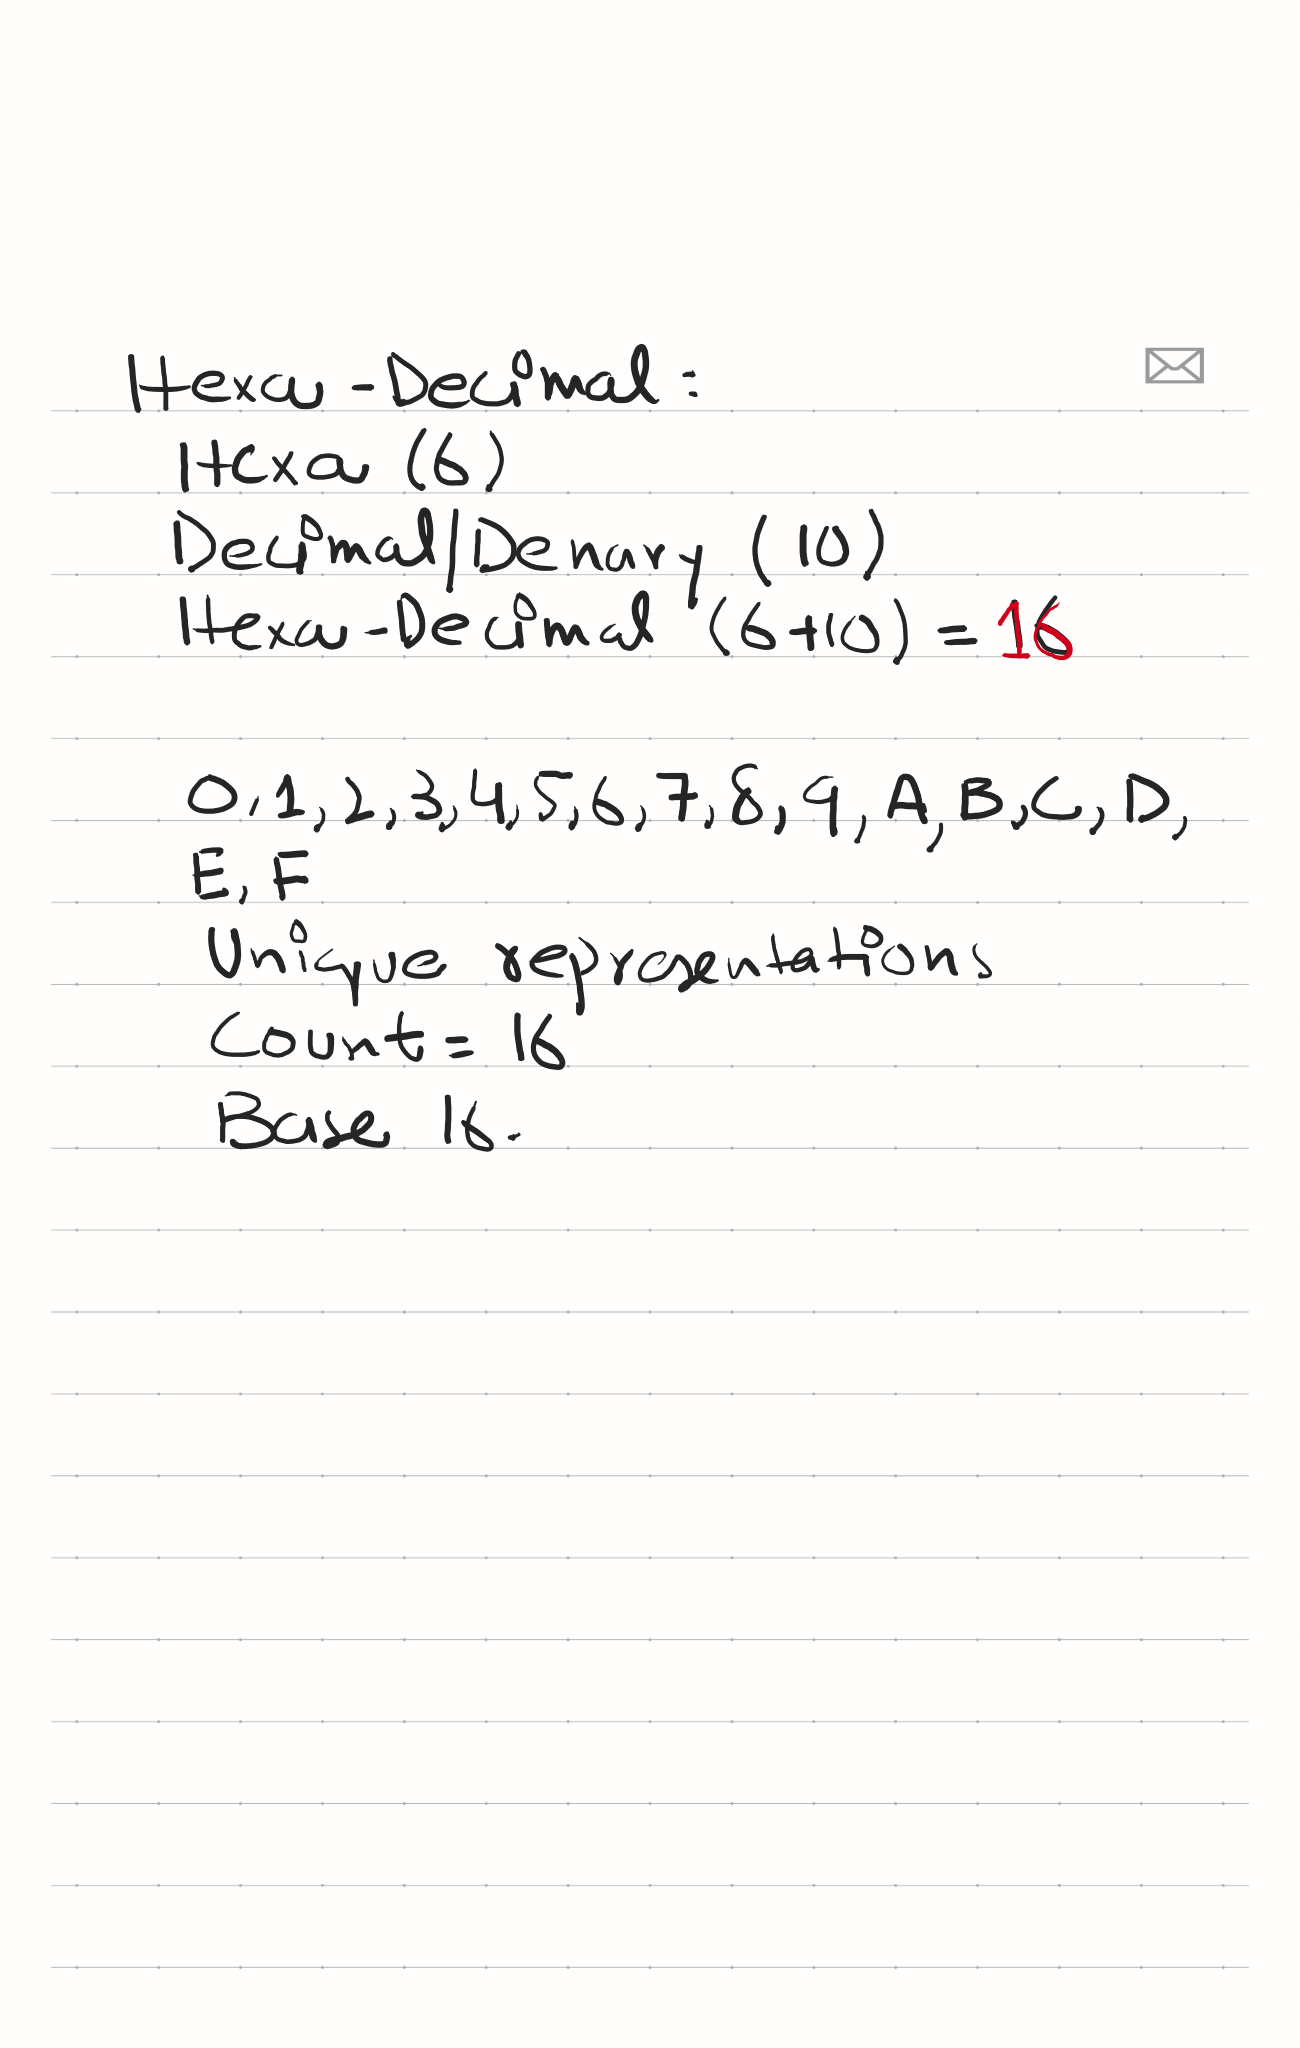 Hexa-Decimal:
Hexa (6)
Decimal/Denary (10)
Hexa-Decimal (6+10) = 16
0,1,2,3,4,5,6,7,8,9,A,B,C,D,
E,F
Unique representations
Count = 16
Base 16.